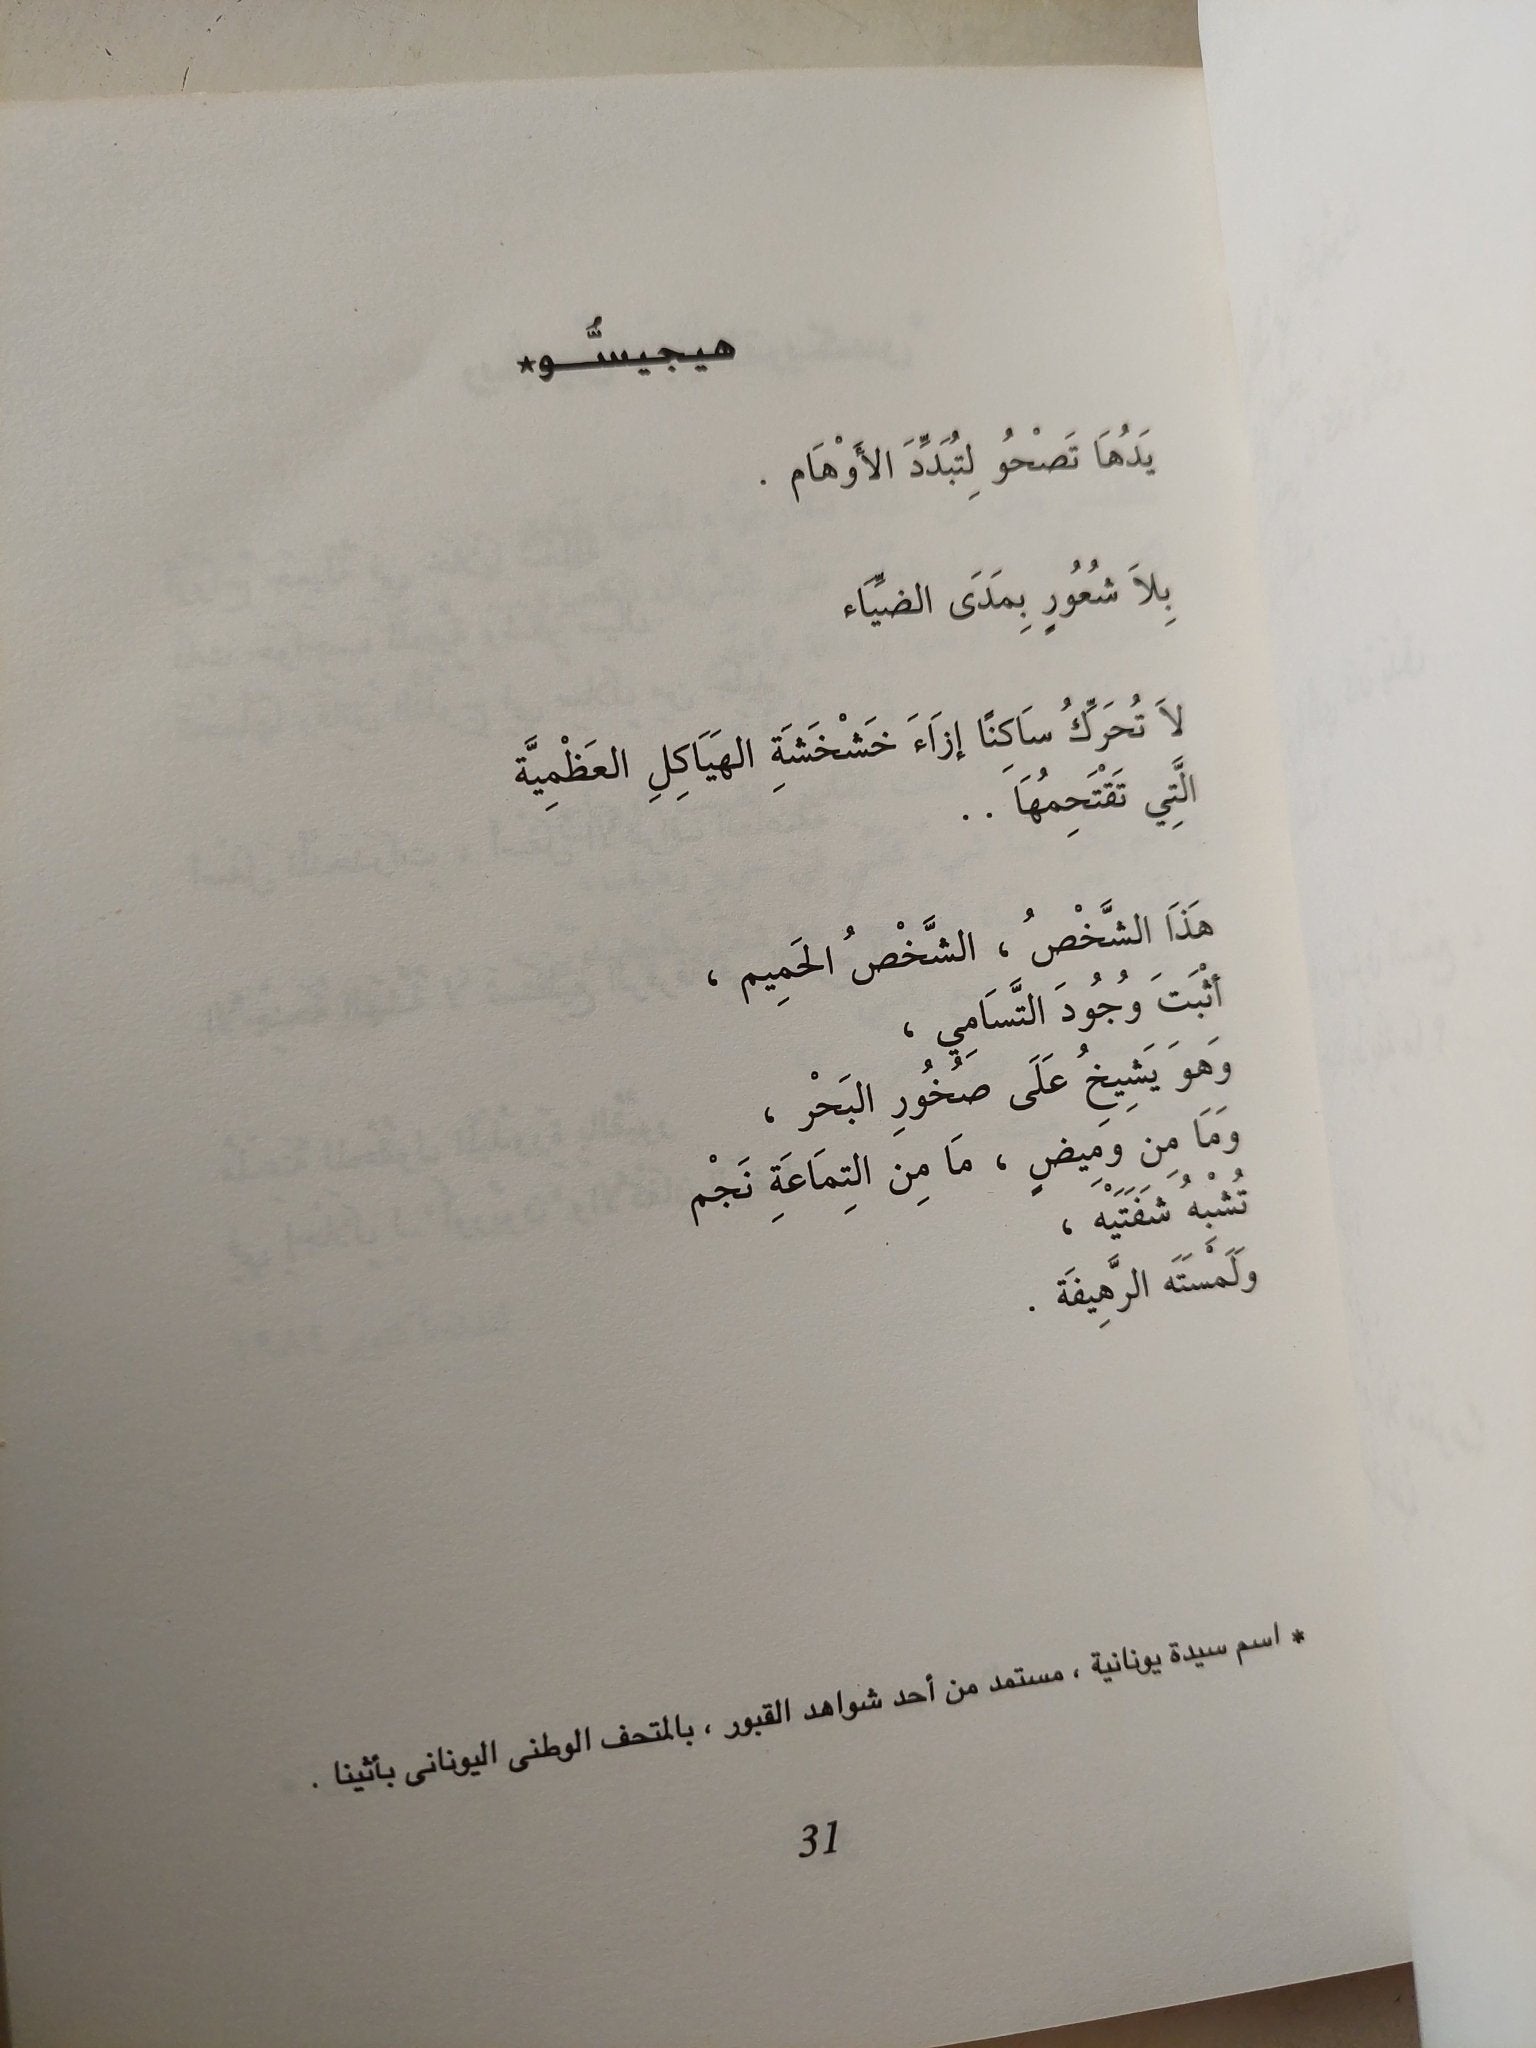 هيجيسُّو*
يَدُهَا تَصْحُو لِتُبَدِّدَ الأَوْهَام .
بِلاَ شُعُورٍ بِمَدَى الضيِّاء
لاَ تُحَرِّكُ سَاكِنًا إزَاءَ خَشْخَشَةِ الهَيَاكِلِ العَظْمِيَّة
الَّتِي تَقْتَحِمُهَا . .
هَذَا الشَّخْصُ ، الشَّخْصُ الحَمِيم ،
أثْبَتَ وُجُودَ التَّسَامِي ،
وَهوَ يَشِيخُ عَلَى صُخُورِ البَحْر ،
وَمَا مِن وَمِيضٍ ، مَا مِن التِمَاعَةِ نَجْم
تُشْبِهُ شَفَتَيْه ،
ولَمْسَتَه الرَّهِيفَة .
* اسم سيدة يونانية ، مستمد من أحد شواهد القبور ، بالمتحف الوطنى اليونانى بأثينا .
31